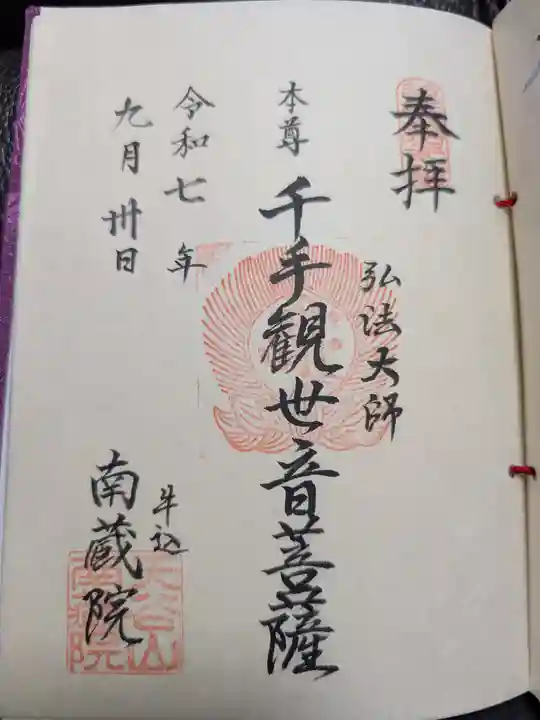 奉拝
弘法大師
本尊
千手観世音菩薩
令和七年
九月卅日
牛込
南蔵院